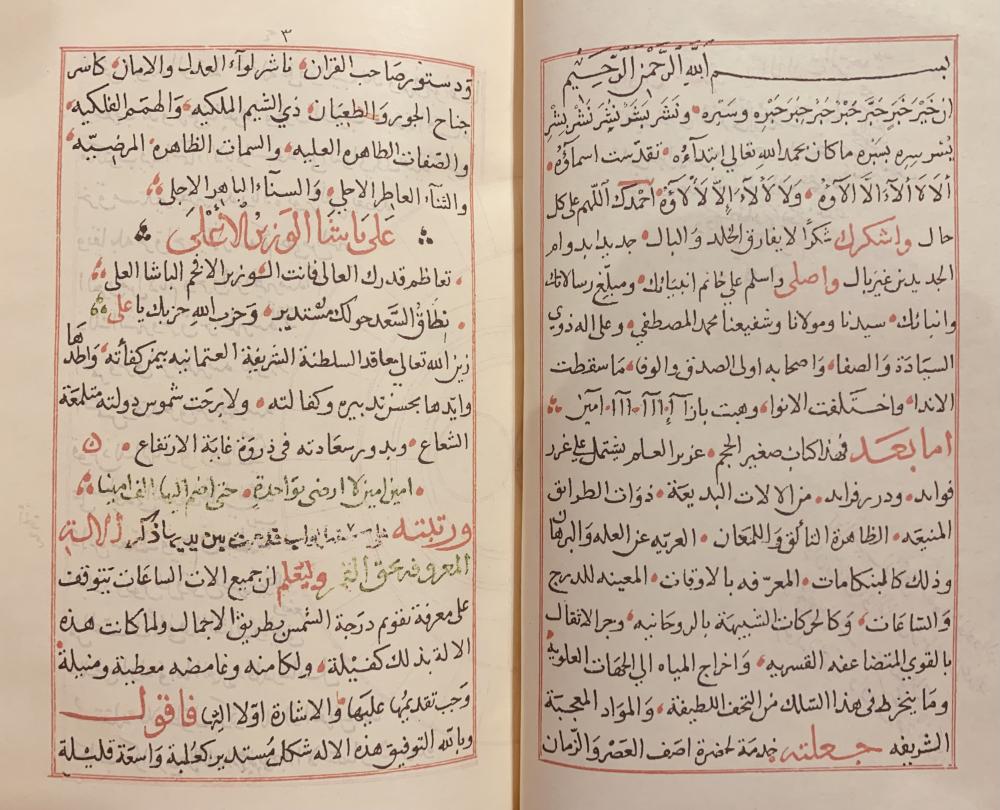 بسم الله الرحمن الرحيم
ان خير خبر حبر حبر حبره وسبره ونشر بشر بشر نشر بشر
بسبره ما كان بحمد الله تعالى ابتداؤه تقدست اسماؤه
ألا لا آلاء الا آلاؤه ولا لألاء إلا لألاؤه أحمدك اللهم على كل
حال واشكرك شكرًا لا يفارق الخلد والبال جديدا بدوام
الجديدين غير بال واصلى واسلم على خاتم انبيائك ومبلغ رسالاتك
وانبائك سيدنا ومولانا وشفيعنا محمد المصطفى وعلى اله ذوي
السيادة والصفا واصحابه اولى الصدق والوفا ما سقطت
الاندا واختلفت الانوا وهبت بازآ امين
اما بعد فهذا كتاب صغير الحجم عزيز العلم يشتمل على غرر
فوايد ودرر فرايد من الالات البديعة ذوات الطرائق
المنيعه الظاهرة التألق واللمعان العريه عن العله والبرهان
وذلك كالبنكامات المعرفه بالاوقات المعينه للدرج
والساعات وكالحركات الشبيهة بالروحانيه وجر الاثقال
بالقوي المتضاعفه القسريه واخراج المياه الى الجهات العلويه
وما ينخرط فى هذا السلك من التحف اللطيفة والمواد العجيبة
الشريفه جعلته خدمة لحضرة اصف العصر والزمان
٣
ودستور صاحب القران ناشر لوآء العدل والامان كاسر
جناح الجور والطغيان ذي الشيم الملكيه والهمم الفلكيه
والصفات الطاهره العليه والسمات الظاهره المرضيه
والثناء العاطر الاجلي والسناء الباهر الاجلي
علي باشا الوزير الأعلى
تعاظم قدرك العالى فانت الوزير الافخم الباشا العلى
نطاق السعد حولك مستدير وحزب الله حزبك يا على
زين الله تعالى بمعاقد السلطنة الشريفة العثمانيه بيمن كفأته واطدها
وايدها بحسن تدبيره وكفالته ولا برحت شموس دولته متلمعة
الشعاع وبدور سعادته فى ذروة غاية الارتفاع
امين امين لا ارضى بواحدة حتى اضم اليها الف امينا
ورتبته ابواب قدمت بين يديها ذكر الالة
المعروفه بحق القمر وليعلم ان جميع الات الساعات يتوقف
على معرفة تقويم درجة الشمس بطريق الاجمال ولما كانت هذه
الالة بذلك كفيلة ولكامنه وغامضه معطية ومنيلة
وجب تقديمها عليها والاشارة اولا اليها فاقول
وبالله التوفيق هذه الاله شكل مستدير كعلبة واسعة قليلة